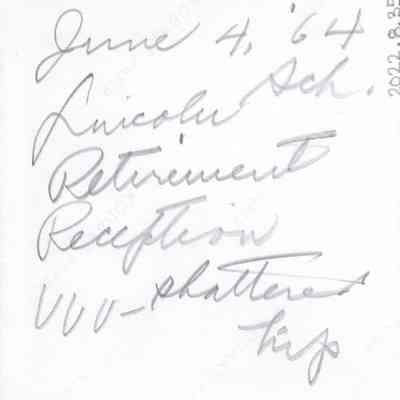 June 4, '64
Lincoln Sch.
Retirement
Reception
VVV - shattered
hip
2022.8.35